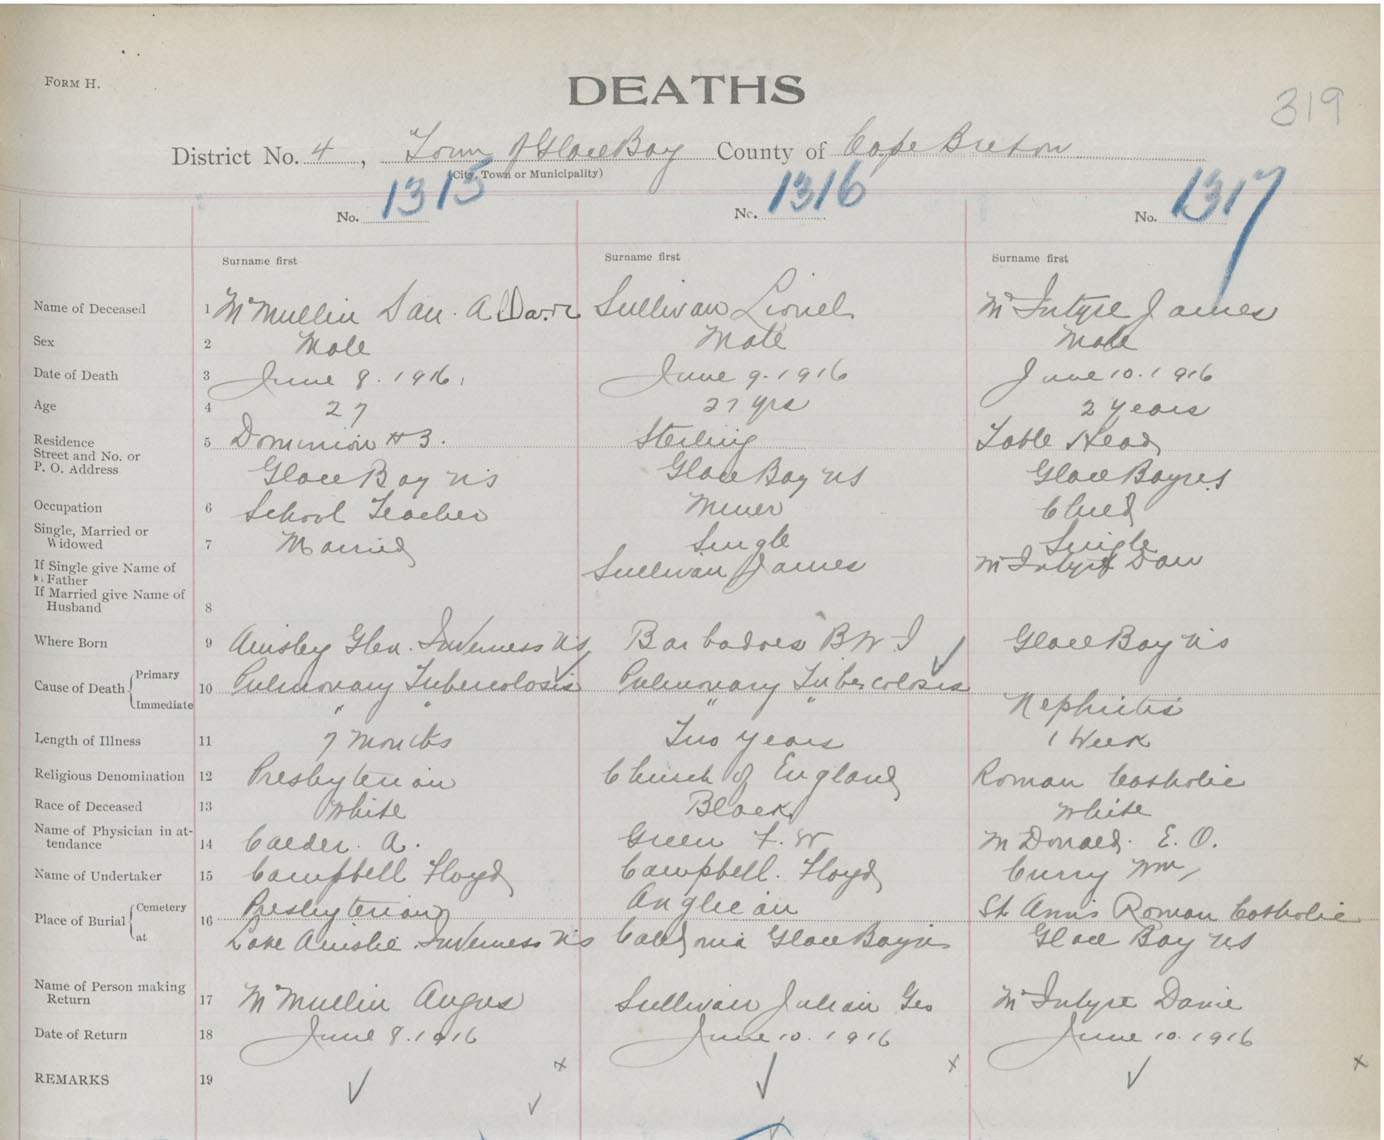 FORM H.
DEATHS
319
District No. 4, Town of Glace Bay County of Cape Breton
(City, Town or Municipality)
No. 1315 No. 1316 No. 1317
Surname first Surname first Surname first
Name of Deceased 1 McMullin Dan. A Sullivan Lionel McIntyre James
Sex 2 Male Male Male
Date of Death 3 June 8. 1916. June 9. 1916 June 10. 1916
Age 4 27 27 yrs 2 years
Residence 5 Dominion #3. Sterling Table Head
Street and No. or
P. O. Address Glace Bay NS Glace Bay NS Glace Bay NS
Occupation 6 School Teacher Miner Child
Single, Married or
Widowed 7 Married Single Single
If Single give Name of
Father Sullivan James McIntyre Dan
If Married give Name of
Husband 8
Where Born 9 Ainsley Glen. Inverness NS Barbadoes B W I Glace Bay NS
Cause of Death Primary 10 Pulmonary Tubercolosis Pulmonary Tubercolosis
Immediate " " " " Nephritis
Length of Illness 11 7 Months Two years 1 Week
Religious Denomination 12 Presbyterian Church of England Roman Catholic
Race of Deceased 13 White Black White
Name of Physician in at-
tendance 14 Calder. A. Green F. W McDonald. E. O.
Name of Undertaker 15 Campbell Floyd Campbell. Floyd Curry Wm
Place of Burial Cemetery 16 Presbyterian Anglican St Anns Roman Catholic
at Lake Ainslie Inverness NS Caledonia Glace Bay NS Glace Bay NS
Name of Person making
Return 17 McMullin Angus Sullivan Julian Geo McIntyre Danie
Date of Return 18 June 8. 1916 June 10. 1916 June 10. 1916
REMARKS 19